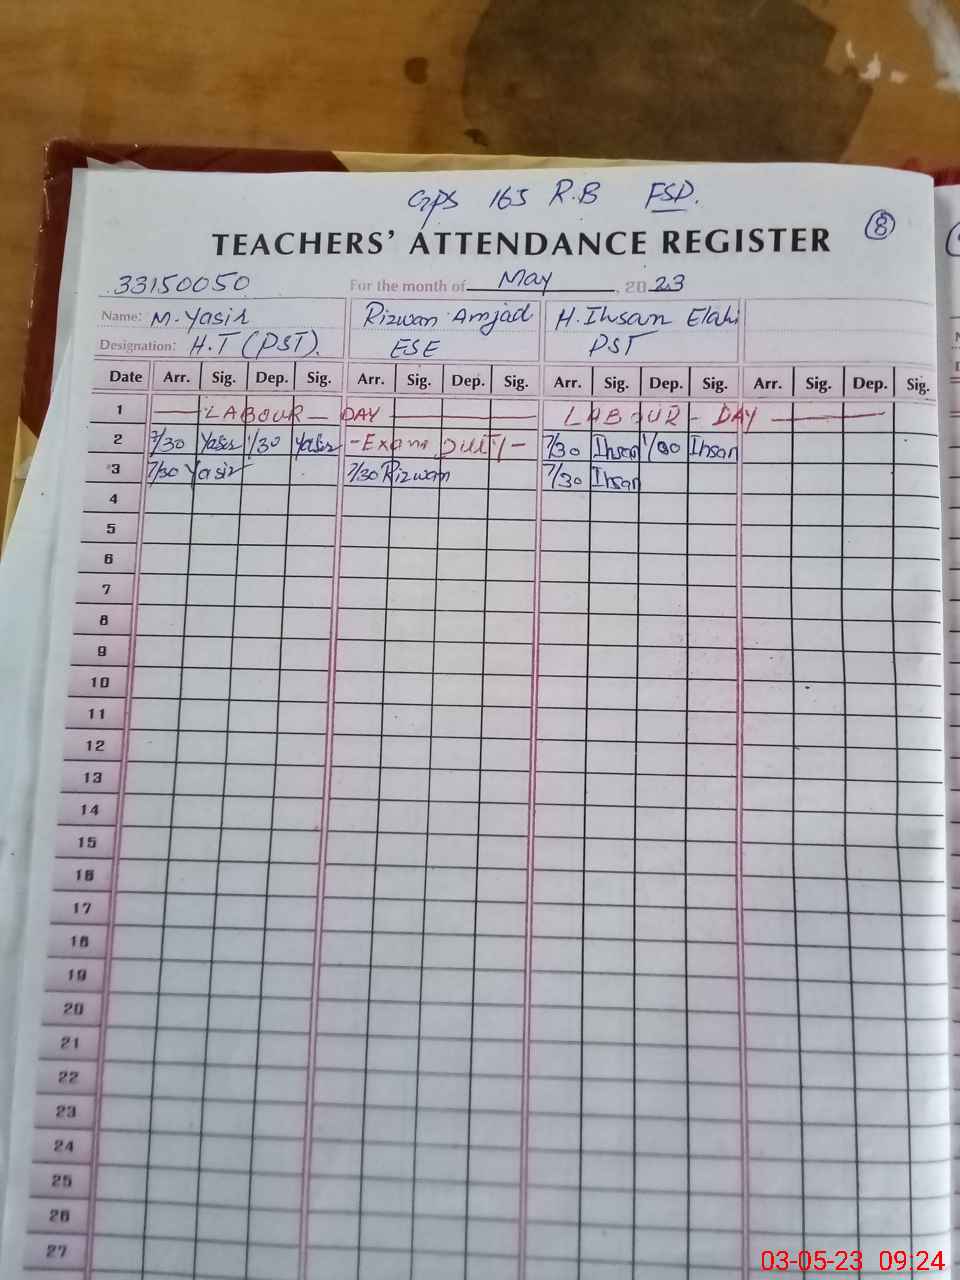 GPS 165 R.B FSD.
TEACHERS' ATTENDANCE REGISTER 8
33150050 For the month of May, 2023
Name: M. Yasir Rizwan Amjad H. Ihsan Elahi
Designation: H.T (PST). ESE PST
Date Arr. Sig. Dep. Sig. Arr. Sig. Dep. Sig. Arr. Sig. Dep. Sig. Arr. Sig. Dep. Sig.
1 LABOUR - DAY LABOUR - DAY
2 7/30 Yasir 1/30 Yasir - Exam Duty - 7/30 Ihsan Ihsan
3 7/30 Yasir 7/30 Rizwan 7/30 Ihsan
4
5
6
7
8
9
10
11
12
13
14
15
16
17
18
19
20
21
22
23
24
25
26
27
03-05-23 09:24